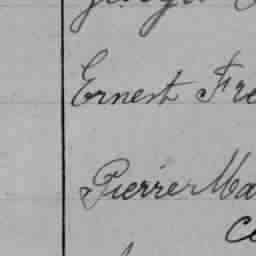 Ernest Fre
Pierre Ma